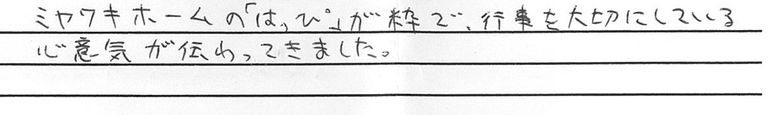 ミヤワキホームの「はっぴ」が粋で、行事を大切にしている
心意気が伝わってきました。